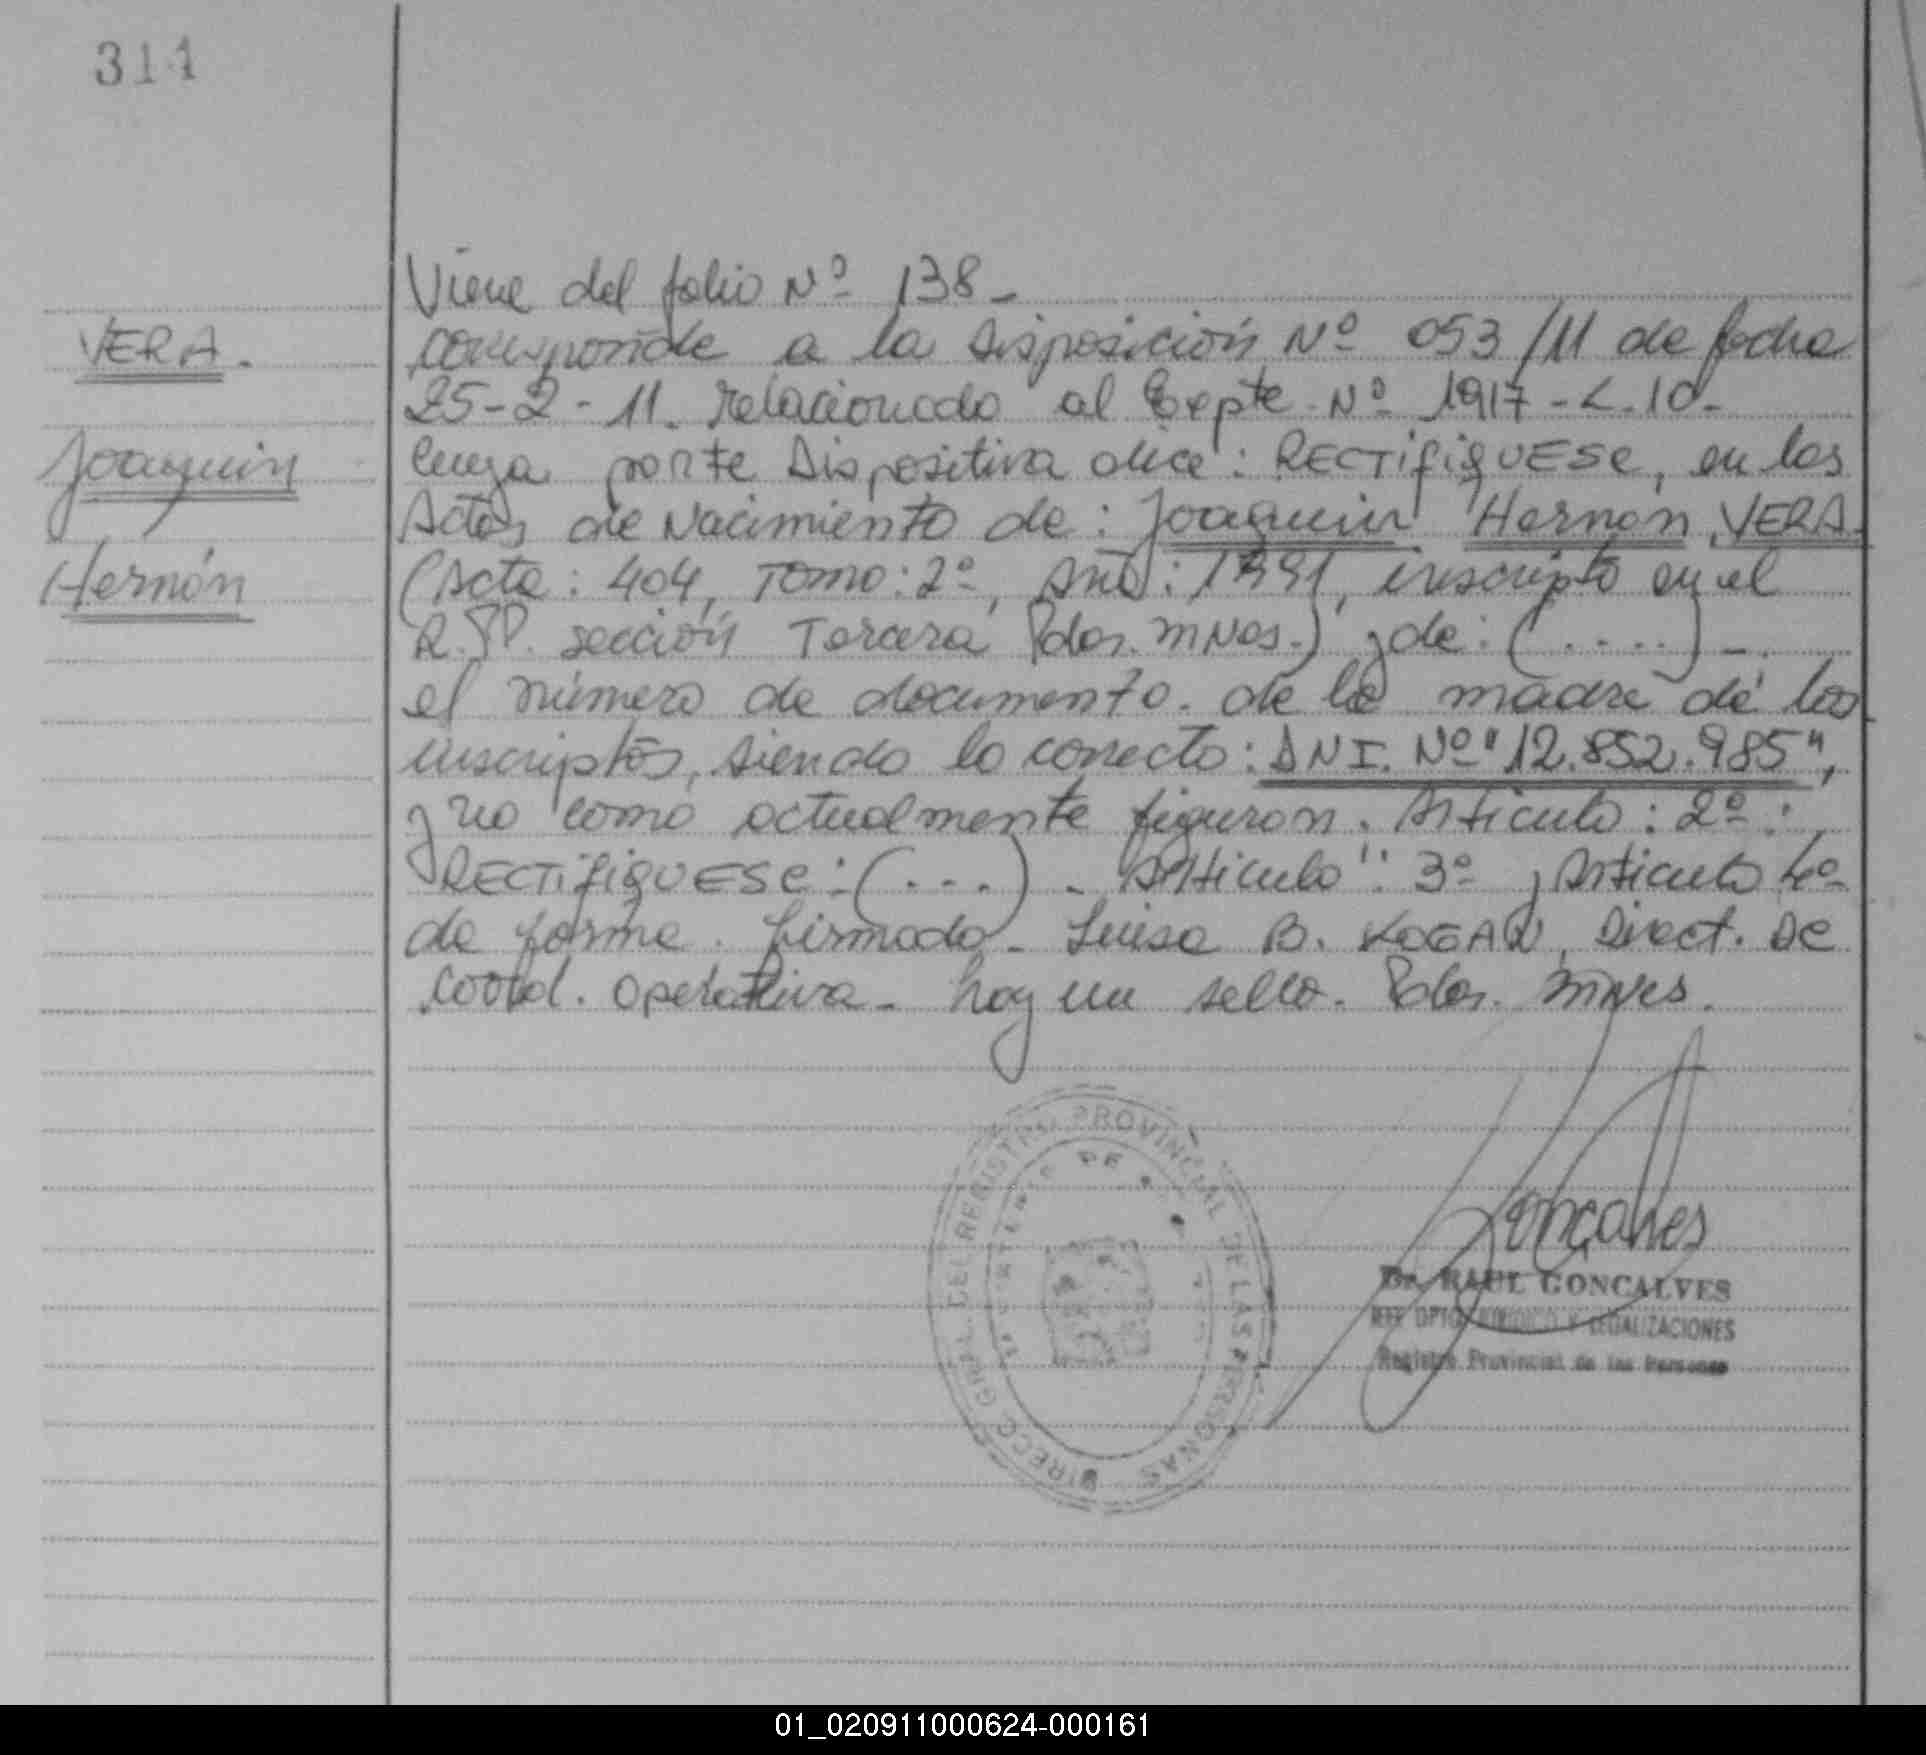 311
Viene del folio Nº 138-
VERA.
corresponde a la Disposición Nº 053/11 de fecha
25-2-11. relacionado al Expte. Nº 1917-L-10-
Joaquin
Cuya parte Dispositiva dice: RECTIFIQUESE, en las
Actas de Nacimiento de: Joaquin Hernán VERA.
Hernán
(Acta: 404, Tomo: 2º, Año: 1991, inscripto en el
R.P.P. sección Tercera Pdas. Mnes.) y de: (....)-.
el número de documento. de la madre de los
inscriptos, siendo lo correcto: DNI. Nº "12.852.985",
y no como actualmente figuran. Articulo: 2º:
RECTIFIQUESE: (...). Articulo: 3º y Articulo 4º
de forma. Firmado- Luisa B. KOGAN, Direct. De
Coord. Operativa- hay un sello. Pdas. Mnes.
DIRECC. GRAL. DEL REGISTRO PROVINCIAL DE LAS PERSONAS
Goncalves
Dr. RAUL GONCALVES
JEFE DPTO. JURIDICO Y LEGALIZACIONES
Registro Provincial de las Personas
01_020911000624-000161